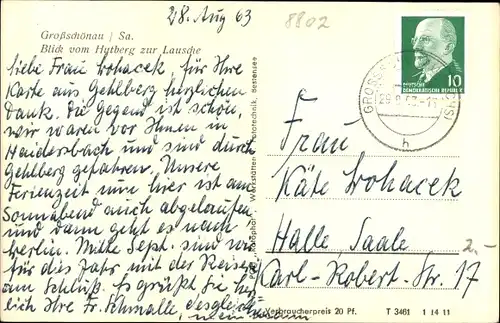 28. Aug 63
8802
Großschönau / Sa.
Blick vom Hutberg zur Lausche
liebe Frau Wohacek, für Ihre
Karte aus Gehlberg herzlichen
Dank. Die Gegend ist schön,
wir waren vor Ihnen in
Haidersbach und sind durch
Gehlberg gefahren. Unsere
Ferienzeit nun hier ist am
Sonnabend auch abgelaufen
und dann geht es nach
Berlin. Mitte Sept. sind wir
für dies Jahr mit der Reiserei
am Schluß. Es grüßt Sie herz-
lich Ihre Fr. Schmalle, desgleich.
mein
DEUTSCHE
DEMOKRATISCHE REPUBLIK
10
29.8.63
h
Frau
Käte Wohacek
Halle, Saale
2.-
Karl-Robert-Str. 17
Verbraucherpreis 20 Pf.
T 3461